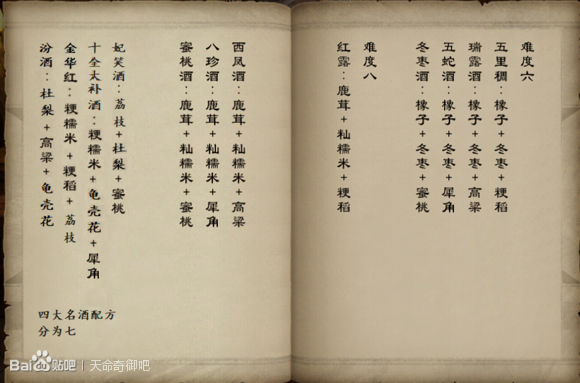 难度六
五里稠：橡子+冬枣+粳稻
瑞露酒：橡子+冬枣+高粱
五蛇酒：橡子+冬枣+犀角
冬枣酒：橡子+冬枣+蜜桃
难度八
红露：鹿茸+籼糯米+粳稻
西凤酒：鹿茸+籼糯米+高粱
八珍酒：鹿茸+籼糯米+犀角
蜜桃酒：鹿茸+籼糯米+蜜桃
妃笑酒：荔枝+杜梨+蜜桃
十全大补酒：粳糯米+龟壳花+犀角
金华红：粳糯米+粳稻+荔枝
汾酒：杜梨+高粱+龟壳花
四大名酒配方
分为七
Bai贴吧|天命奇御吧